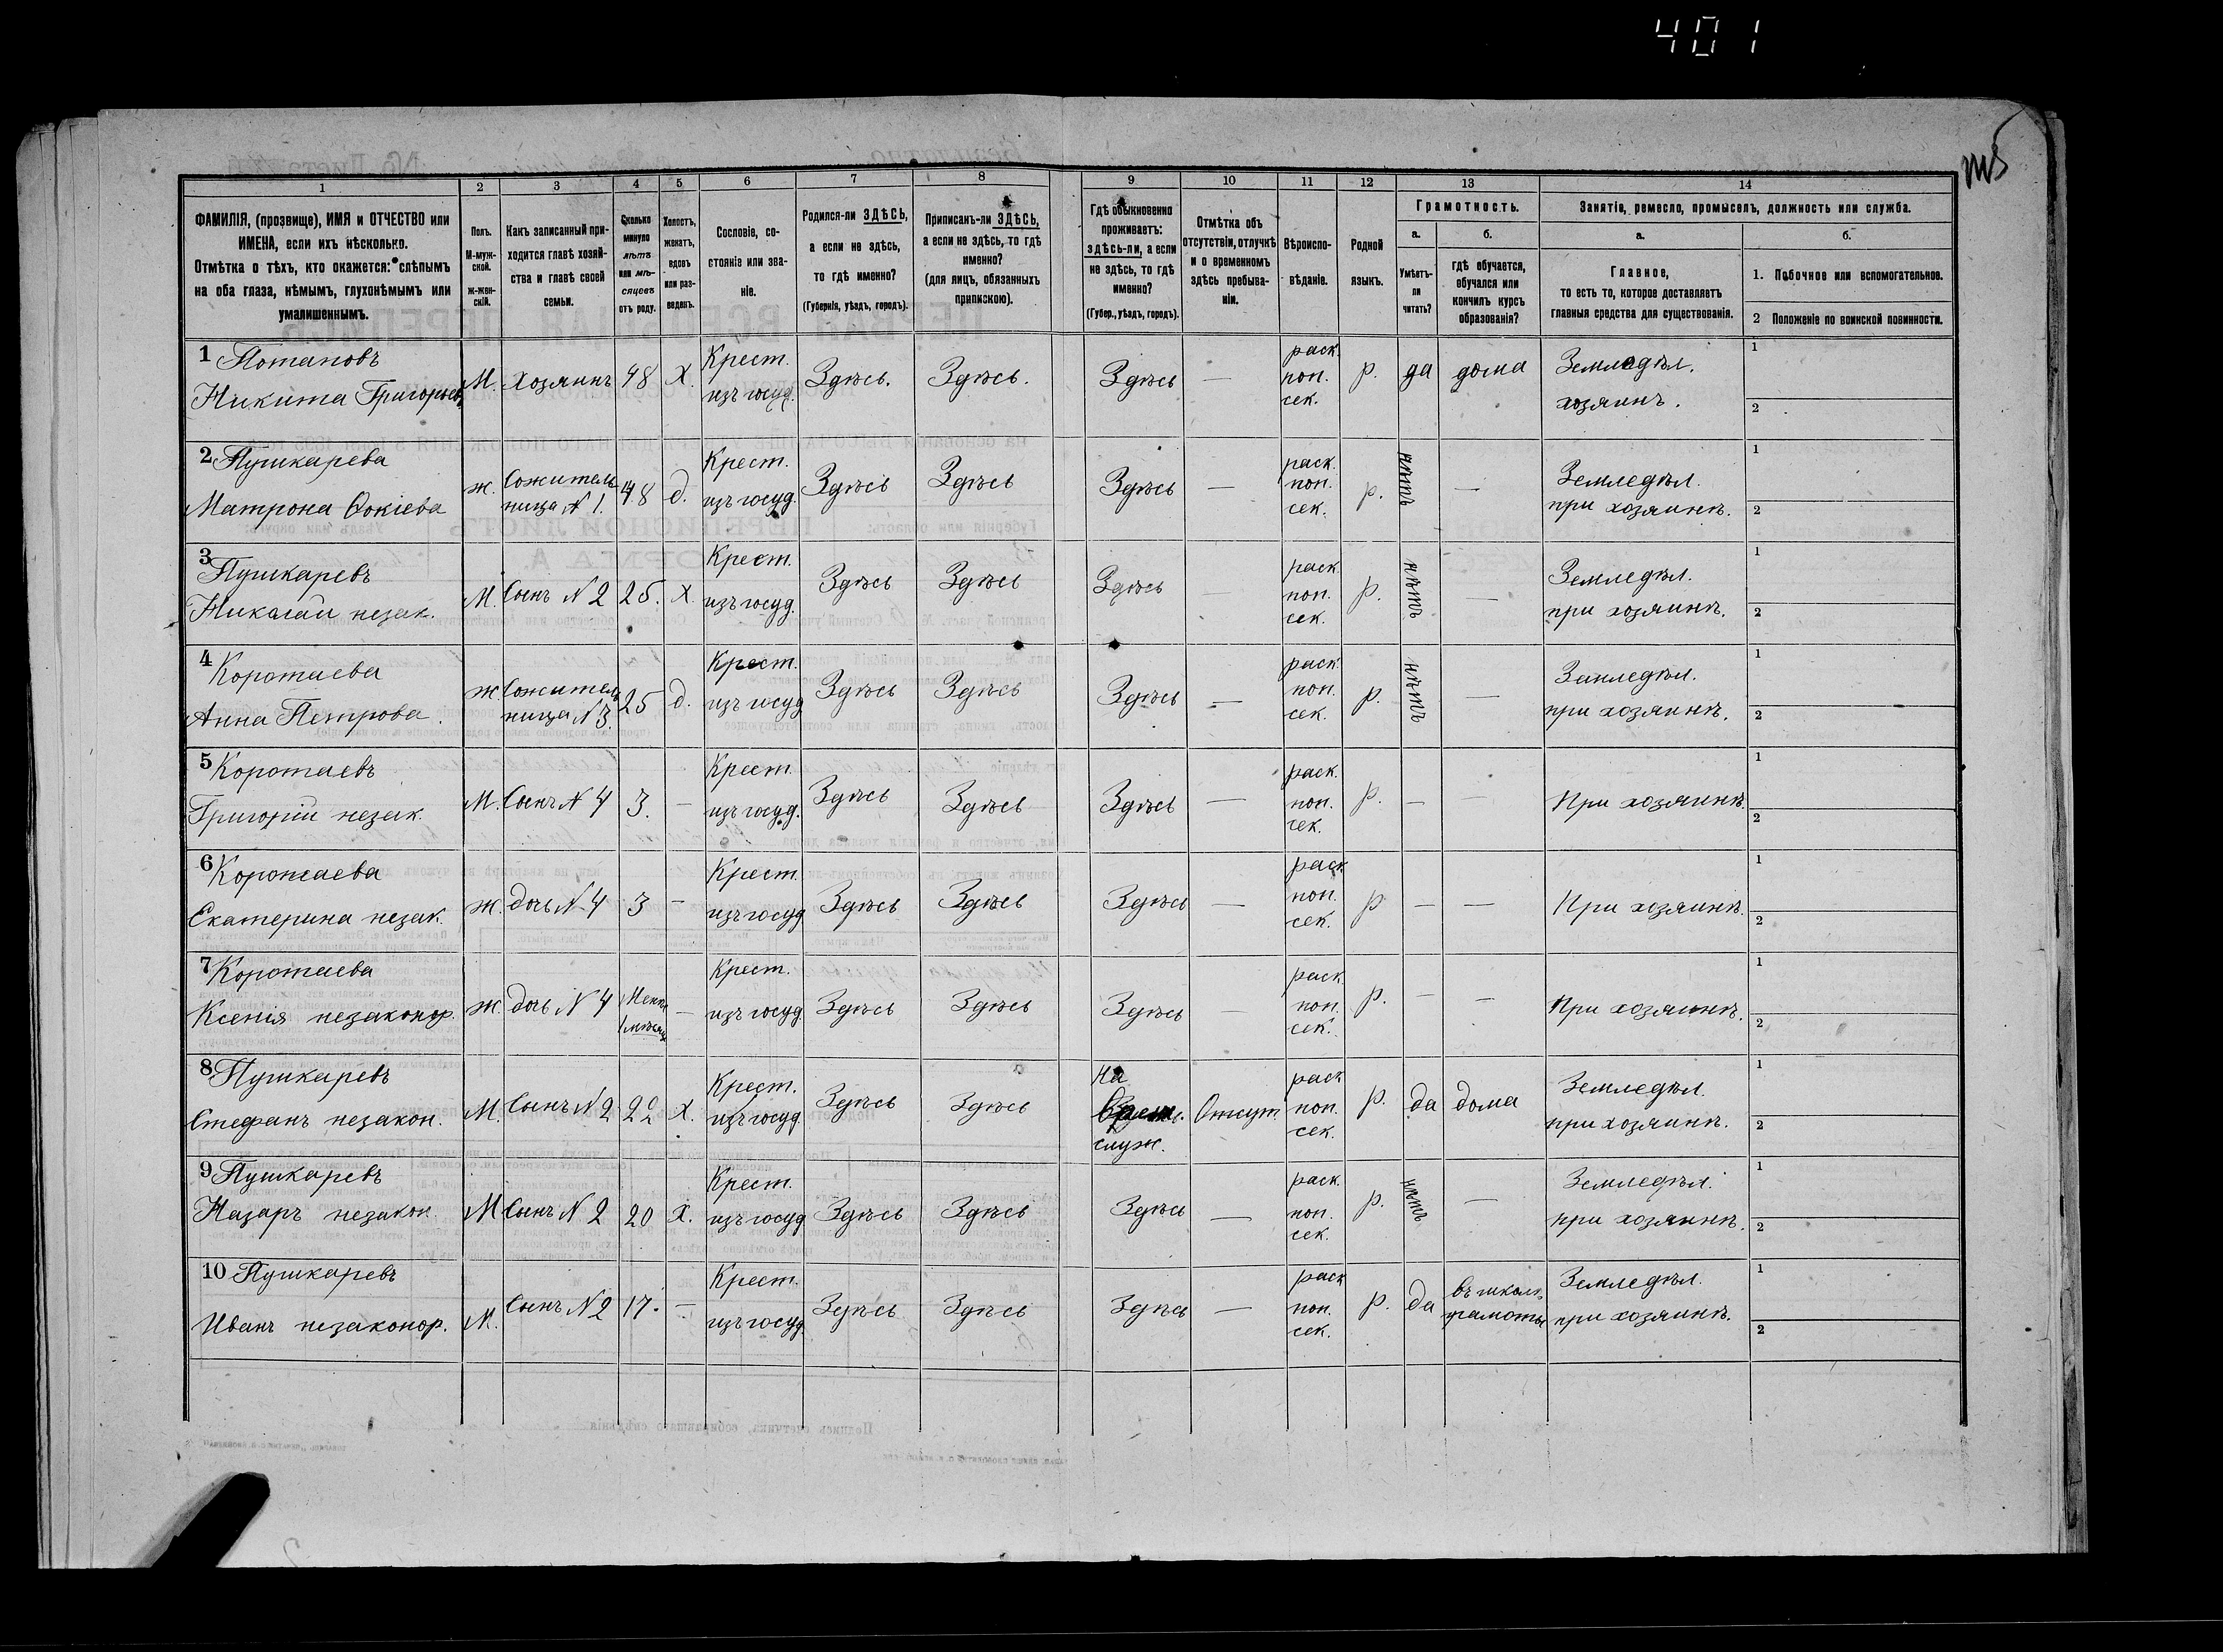 401
1 2 3 4 5 6 7 8 9 10 11 12 13 14
ФАМИЛІЯ, (прозвище), ИМЯ и ОТЧЕСТВО или
ИМЕНА, если ихъ нѣсколько.
Отмѣтка о тѣхъ, кто окажется: слѣпымъ
на оба глаза, нѣмымъ, глухонѣмымъ или
умалишеннымъ.
Полъ.
М-муж-
ской.
ж-жен-
скій.
Какъ записанный при-
ходится главѣ хозяй-
ства и главѣ своей
семьи.
Сколько
минуло
лѣтъ
или мѣ-
сяцевъ
отъ роду.
Холостъ,
женатъ,
вдовъ
или раз-
веденъ.
Сословіе, со-
стояніе или зва-
ніе.
Родился-ли ЗДѢСЬ,
а если не здѣсь,
то гдѣ именно?
(Губернія, уѣздъ, городъ).
Приписанъ-ли ЗДѢСЬ,
а если не здѣсь, то гдѣ
именно?
(для лицъ, обязанныхъ
припискою).
Гдѣ обыкновенно
проживаетъ:
здѣсь-ли, а если
не здѣсь, то гдѣ
именно?
(Губер., уѣздъ, городъ).
Отмѣтка объ
отсутствіи, отлучкѣ
и о временномъ
здѣсь пребыва-
ніи.
Вѣроиспо-
вѣданіе.
Родной
языкъ.
Грамотность.
а.
Умѣетъ-
ли
читать?
б.
гдѣ обучается,
обучался или
кончилъ курсъ
образованія?
Занятіе, ремесло, промыселъ, должность или служба.
а.
Главное,
то есть то, которое доставляетъ
главныя средства для существованія.
б.
1. Побочное или вспомогательное.
2 Положеніе по воинской повинности.
1 Потаповъ
Никита Григорьев
М. Хозяинъ 48 Х. Крест.
изъ госуд. Здѣсь. Здѣсь. Здѣсь — раск.
поп.
сек. р. да дома Земледѣл.
хозяинъ.
1
2
2 Пушкарева
Матрона Фокіева
ж. Сожитель-
ница № 1. 48 д. Крест.
изъ госуд. Здѣсь Здѣсь Здѣсь — раск.
поп.
сек. р. нѣтъ — Земледѣл.
при хозяинѣ.
1
2
3 Пушкаревъ
Николай незак.
М. Сынъ № 2 25. Х Крест.
изъ госуд. Здѣсь Здѣсь Здѣсь раск.
поп.
сек. р. нѣтъ — Земледѣл.
при хозяинѣ.
1
2
4 Коротаева
Анна Петрова.
ж. Сожитель
ница № 3 25 д. Крест.
изъ госуд Здѣсь Здѣсь Здѣсь — раск.
поп.
сек. р. нѣтъ — Земледѣл.
при хозяинѣ.
1
2
5 Коротаевъ
Григорій незак.
М. Сынъ № 4 3. — Крест.
изъ госуд. Здѣсь Здѣсь Здѣсь — раск.
поп.
сек. р. — — При хозяинѣ
1
2
6 Коротаева
Екатерина незак.
ж. дочь № 4 3 — Крест.
изъ госуд Здѣсь Здѣсь Здѣсь — раск.
поп.
сек. р — — При хозяинѣ.
1
2
7 Коротаева
Ксенія незаконор.
ж. дочь № 4 — Крест.
изъ госуд. Здѣсь Здѣсь Здѣсь — раск
поп.
сек. р. — — При хозяинѣ.
1
2
8 Пушкаревъ
Стефанъ незакон.
М. Сынъ № 2 22 Х. Крест.
изъ госуд. Здѣсь Здѣсь На
служ. Отсут. раск
поп.
сек. р. да дома Земледѣл.
при хозяинѣ.
1
2
9 Пушкаревъ
Назаръ незакон.
М Сынъ № 2 20 Х. Крест.
изъ госуд Здѣсь Здѣсь Здѣсь — раск.
поп.
сек. р. нѣтъ — Земледѣл.
при хозяинѣ.
1
2
10 Пушкаревъ
Иванъ незаконор.
М. Сынъ № 2 17. — Крест.
изъ госуд. Здѣсь Здѣсь Здѣсь — раск
поп.
сек. р. да въ школѣ
грамоты Земледѣл.
при хозяинѣ.
1
2